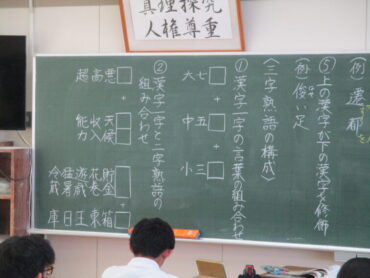 真理探究
人権尊重
(例) 遷都
⑤上の漢字が下の漢字を修飾
(例) 俊い足
〈三字熟語の構成〉
①漢字一字の言葉の組み合わせ
七五三
大中小
②漢字一字と二字熟語の
組み合わせ
□+□
悪天候
高収入
超能力
□+□
貯金箱
遊戯王
猛暑日
冷蔵庫